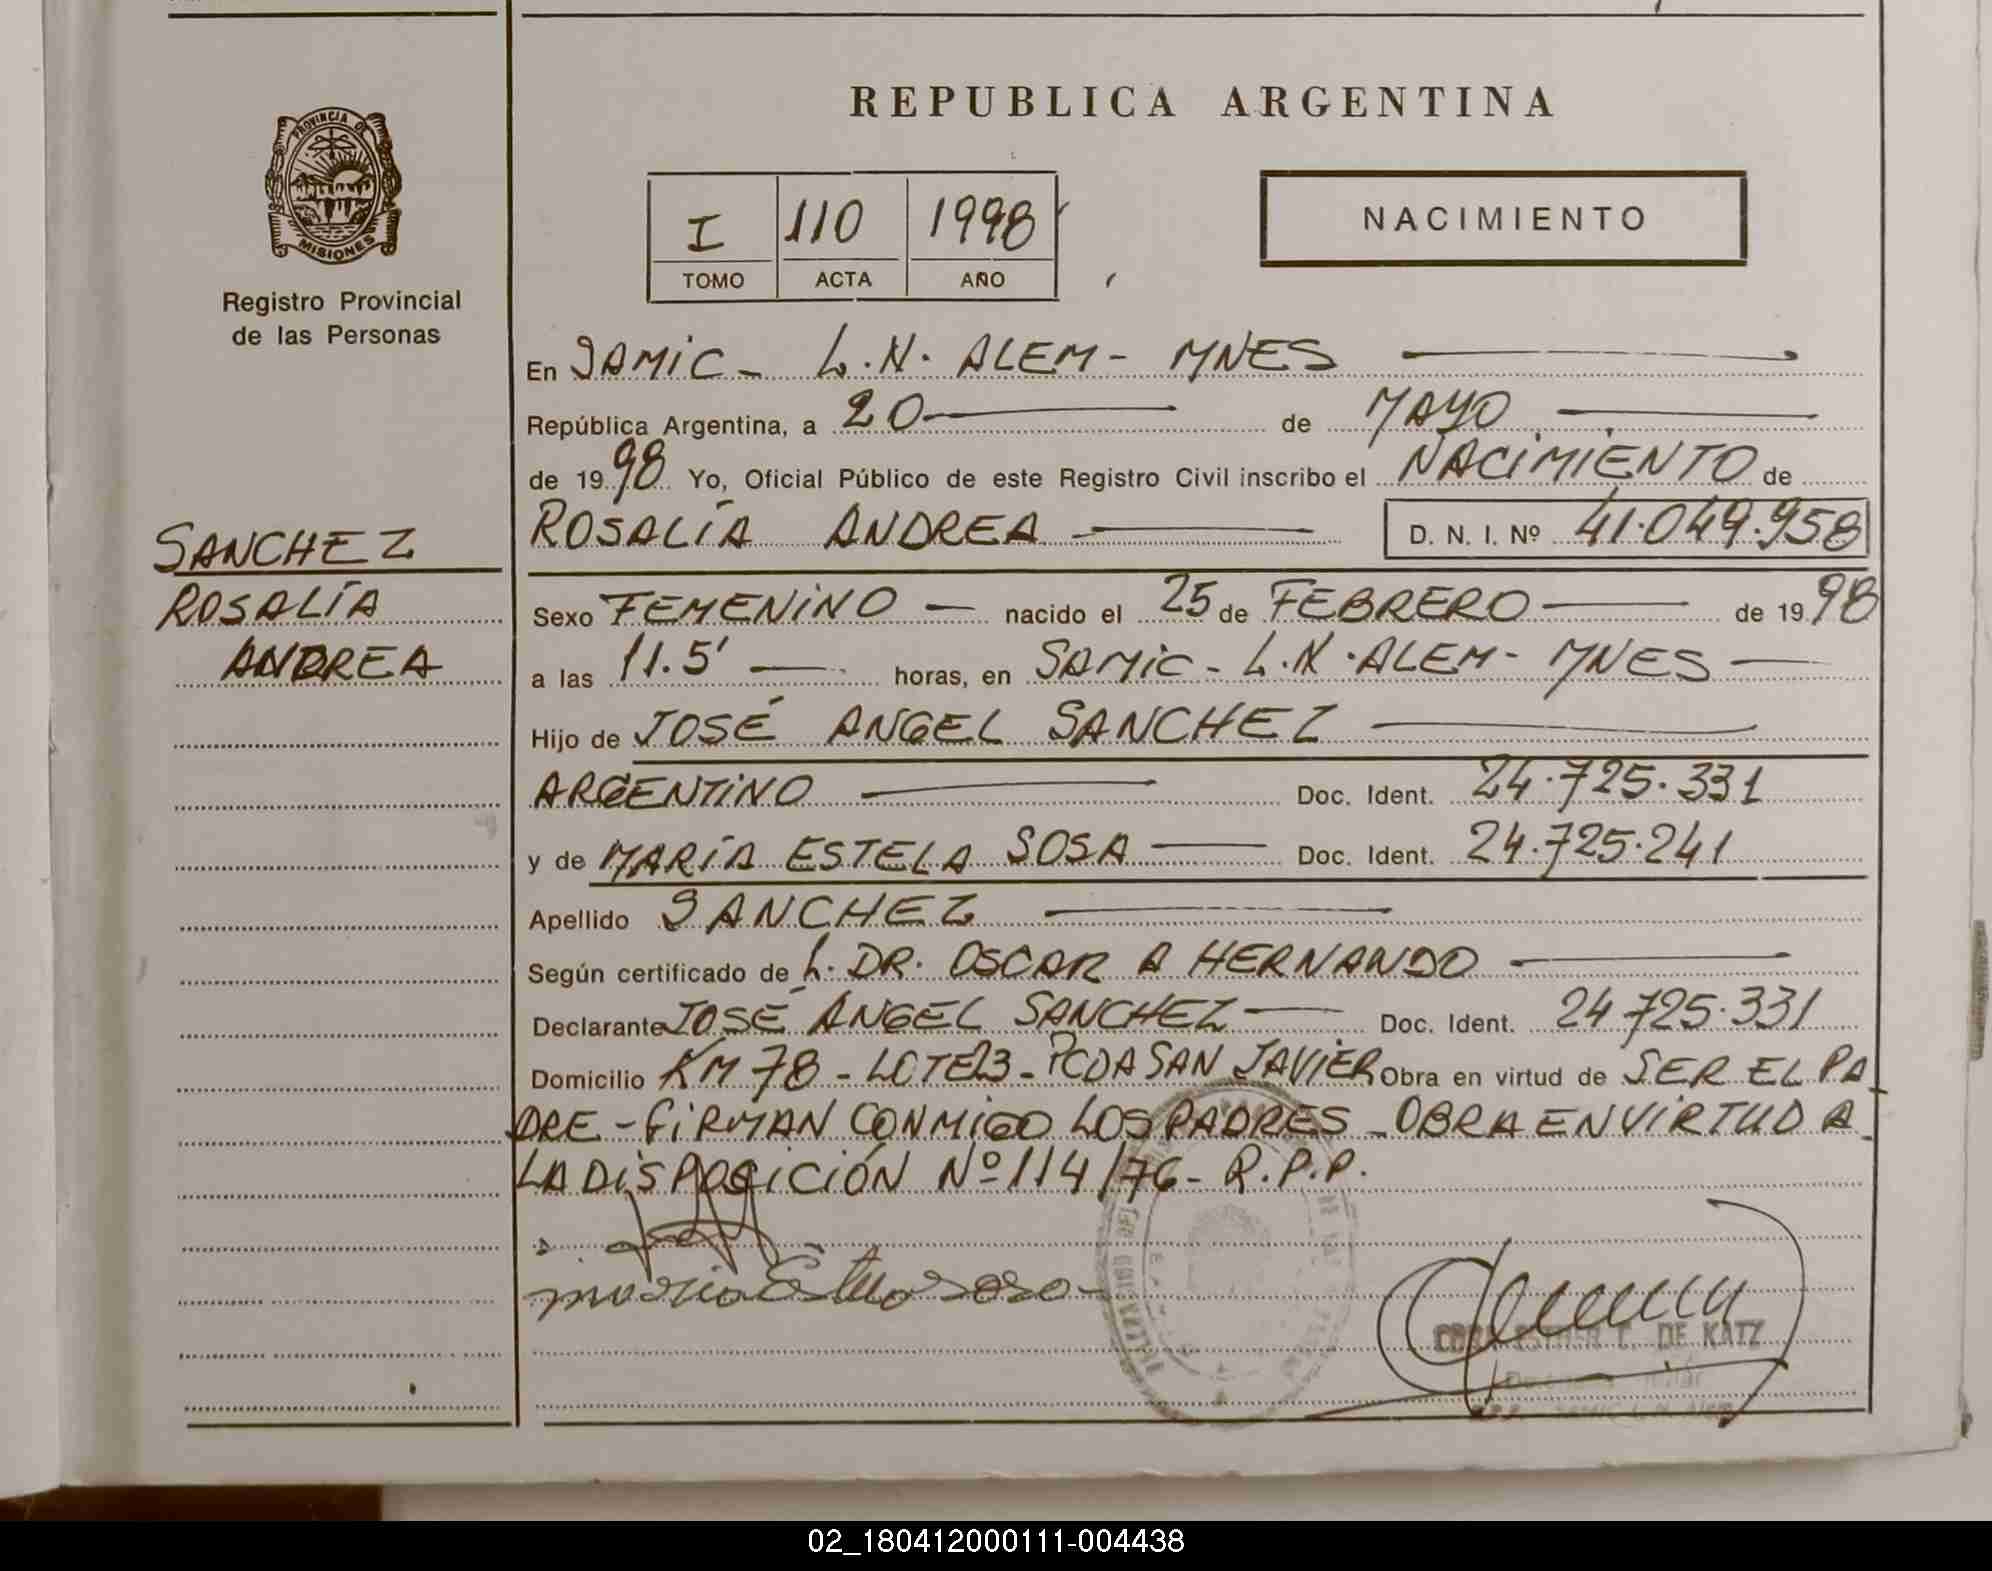 REPUBLICA ARGENTINA
PROVINCIA DE
MISIONES
Registro Provincial
de las Personas
I 110 1998
TOMO ACTA AÑO
NACIMIENTO
En SAMIC - L.N. ALEM - MNES
República Argentina, a 20 de MAYO
de 1998 Yo, Oficial Público de este Registro Civil inscribo el NACIMIENTO de
ROSALÍA ANDREA D. N. I. Nº 41.049.958
SANCHEZ
ROSALÍA
ANDREA
Sexo FEMENINO nacido el 25 de FEBRERO de 1998
a las 11.5' horas, en SAMIC - L.N. ALEM - MNES
Hijo de JOSÉ ANGEL SANCHEZ
ARGENTINO Doc. Ident. 24.725.331
y de MARÍA ESTELA SOSA Doc. Ident. 24.725.241
Apellido SANCHEZ
Según certificado de L. DR. OSCAR A HERNANDO
Declarante JOSÉ ANGEL SANCHEZ Doc. Ident. 24.725.331
Domicilio KM 78 - LOTE 23 - PCDA SAN JAVIER Obra en virtud de SER EL PA
DRE - FIRMAN CONMIGO LOS PADRES - OBRA EN VIRTUD A
LA DISPOSICIÓN Nº 114/76 - R.P.P.
maria Estela sosa
ESTHER C. DE KATZ
02_180412000111-004438